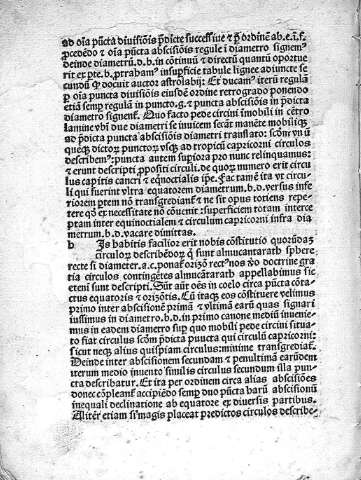 ad oīa pūcta diuisiōis p̄dicte successiue et p̄ ordinē ab.e.ī.f.
p̱cedēdo et oīa pūcta abscisiōis regule i diametro signem⁹
deinde diametrū.d.b.in cōtinuū et directū quantū oportue
rit ex pte.b.ptraham⁹ insuꝑficie tabule lignee adiuncte se
cundū ꝙ docuit auctor astrolabij: Et ducam⁹ iterū regulā
ꝑ oīa puncta diuisionis eiusdē ordine retrogrado ponendo
etiā semꝑ regulā in puncto.g. et puncta abscisiōis in p̄dicta
diametro signent̄. Quo facto pede circini imobili in cētro
lamine vbi due diametri se inuicem secāt manēte mobiliqꝫ
ad p̄dicta puncta abscisiōis diametri translato:
describem⁹: puncta autem supiora pro nunc relinquamus:
et erunt descripti ppositi circuli. de quoꝝ numero erit circu
lus capitis cancri et eq̄noctialis ipe. Fac tamē ita vt circu
li qui fuerint vltra equatorem diametrum.b.d.versus infe
riorem ptem nō transgrediant̄ et ne sit opus totiens repe
tere qō ex necessitate nō cōuenit: superficiem totam interce
ptam inter equinoctialem et circulum capricorni infra dia
metrum.b.d.vacare dimittas.
b Is habitis facilior erit nobis cōstitutio quorūdaꝫ
circuloꝝ describēdoꝝ q̄ sunt almucantarath sphere
recte si diameter.a.c.ponat̄ orizō rect⁹ hos nō doctrine gra
tia circulos contingētes almucātarath appellabimus sic
eteni sunt descripti. Sūt aūt oēs in coelo circa pūcta cōta
ctus equatoris et orizōtis. Cū itaqꝫ eos cōstituere velimus
primo inter abscisionē primā et vltimā earū quas signari
iussimus in diametro.b.d.in primo canone mediū inuenie
mus in eadem diametro sup quo mobili pede circini situa
to fiat circulus scōm p̄dicta puucta qui circulū capricorni:
sicut neqꝫ alius quispiam circulus:minime transgrediat̄.
Deinde inter abscisionem secundam et penultimā earūdem
iterum medio inuento similis circulus secundum illa pun-
cta describatur. Et ita per ordinem circa alias abscisiōes
donec cōpleant̄ accipiēdo semꝑ duo pūcta harū abscisionū
inequali declinatione ab equatore ex diuersis partibus.
Aliter etiam si magis placeat predictos circulos describe-